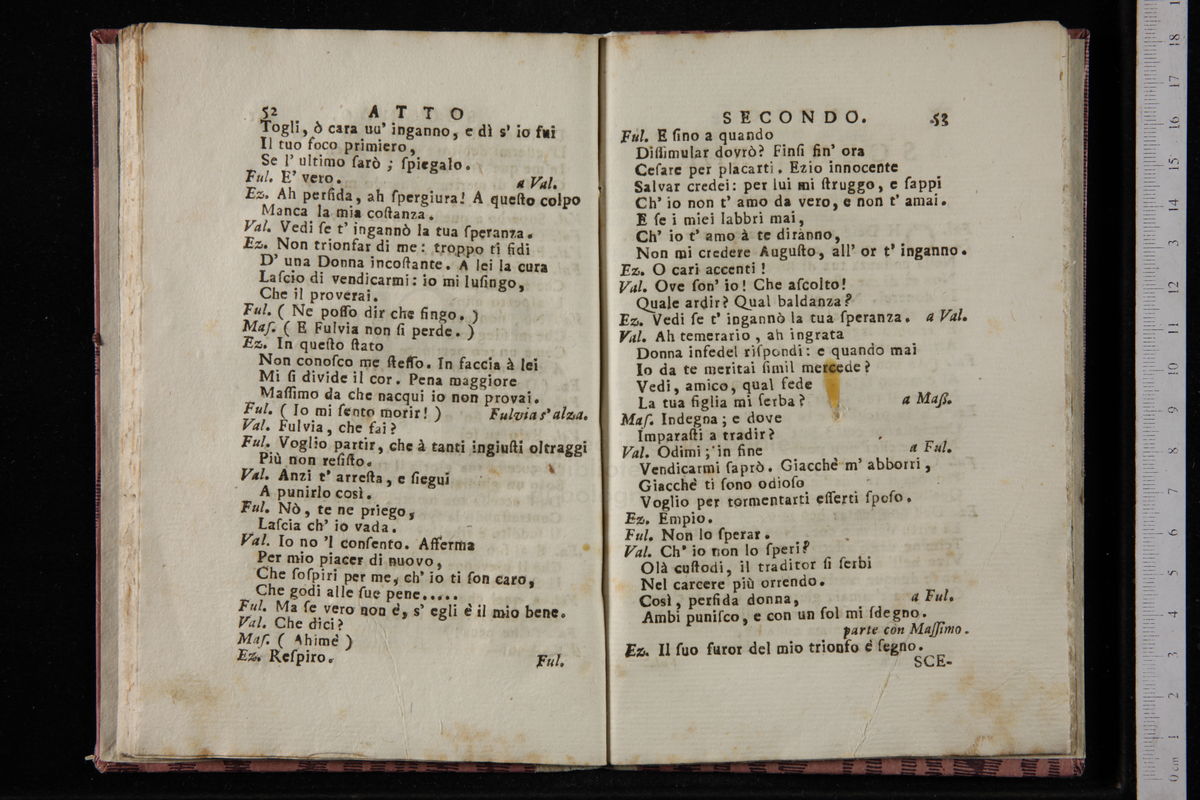 52 ATTO
Togli, ò cara uu' inganno, e dì s' io fui
Il tuo foco primiero,
Se l' ultimo ſarò ; ſpiegalo.
Ful. E' vero. a Val.
Ez. Ah perfida, ah ſpergiura! A queſto colpo
Manca la mia coſtanza.
Val. Vedi ſe t' ingannò la tua ſperanza.
Ez. Non trionfar di me: troppo ti fidi
D' una Donna incoſtante. A lei la cura
Laſcio di vendicarmi: io mi luſingo,
Che il proverai.
Ful. ( Ne poſſo dir che fingo. )
Maſ. ( E Fulvia non ſi perde. )
Ez. In queſto ſtato
Non conoſco me ſteſſo. In faccia à lei
Mi ſi divide il cor. Pena maggiore
Maſſimo da che nacqui io non provai.
Ful. ( Io mi ſento morir! ) Fulvia s' alza.
Val. Fulvia, che fai?
Ful. Voglio partir, che à tanti ingiuſti oltraggi
Più non reſiſto.
Val. Anzi t' arreſta, e ſiegui
A punirlo così.
Ful. Nò, te ne priego,
Laſcia ch' io vada.
Val. Io no 'l conſento. Afferma
Per mio piacer di nuovo,
Che ſoſpiri per me, ch' io ti ſon caro,
Che godi alle ſue pene.....
Ful. Ma ſe vero non è, s' egli è il mio bene.
Val. Che dici?
Maſ. ( Ahimè )
Ez. Reſpiro.
Ful.
SECONDO. 53
Ful. E ſino a quando
Diſſimular dovrò? Finſi fin' ora
Ceſare per placarti. Ezio innocente
Salvar credei: per lui mi ſtruggo, e ſappi
Ch' io non t' amo da vero, e non t' amai.
E ſe i miei labbri mai,
Ch' io t' amo à te diranno,
Non mi credere Auguſto, all' or t' inganno.
Ez. O cari accenti !
Val. Ove ſon' io! Che aſcolto!
Quale ardir? Qual baldanza?
Ez. Vedi ſe t' ingannò la tua ſperanza. a Val.
Val. Ah temerario , ah ingrata
Donna infedel riſpondi: e quando mai
Io da te meritai ſimil mercede?
Vedi, amico, qual fede
La tua figlia mi ſerba? a Maſſ.
Maſ. Indegna; e dove
Imparaſti a tradir?
Val. Odimi; in fine a Ful.
Vendicarmi ſaprò. Giacchè m' abborri,
Giacchè ti ſono odioſo
Voglio per tormentarti eſſerti ſpoſo.
Ez. Empio.
Ful. Non lo ſperar.
Val. Ch' io non lo ſperi?
Olà cuſtodi, il traditor ſi ſerbi
Nel carcere più orrendo.
Così, perfida donna, a Ful.
Ambi puniſco, e con un ſol mi ſdegno.
parte con Maſſimo.
Ez. Il ſuo furor del mio trionfo è ſegno.
SCE-
0 cm 1 2 3 4 5 6 7 8 9 10 11 12 13 14 15 16 17 18